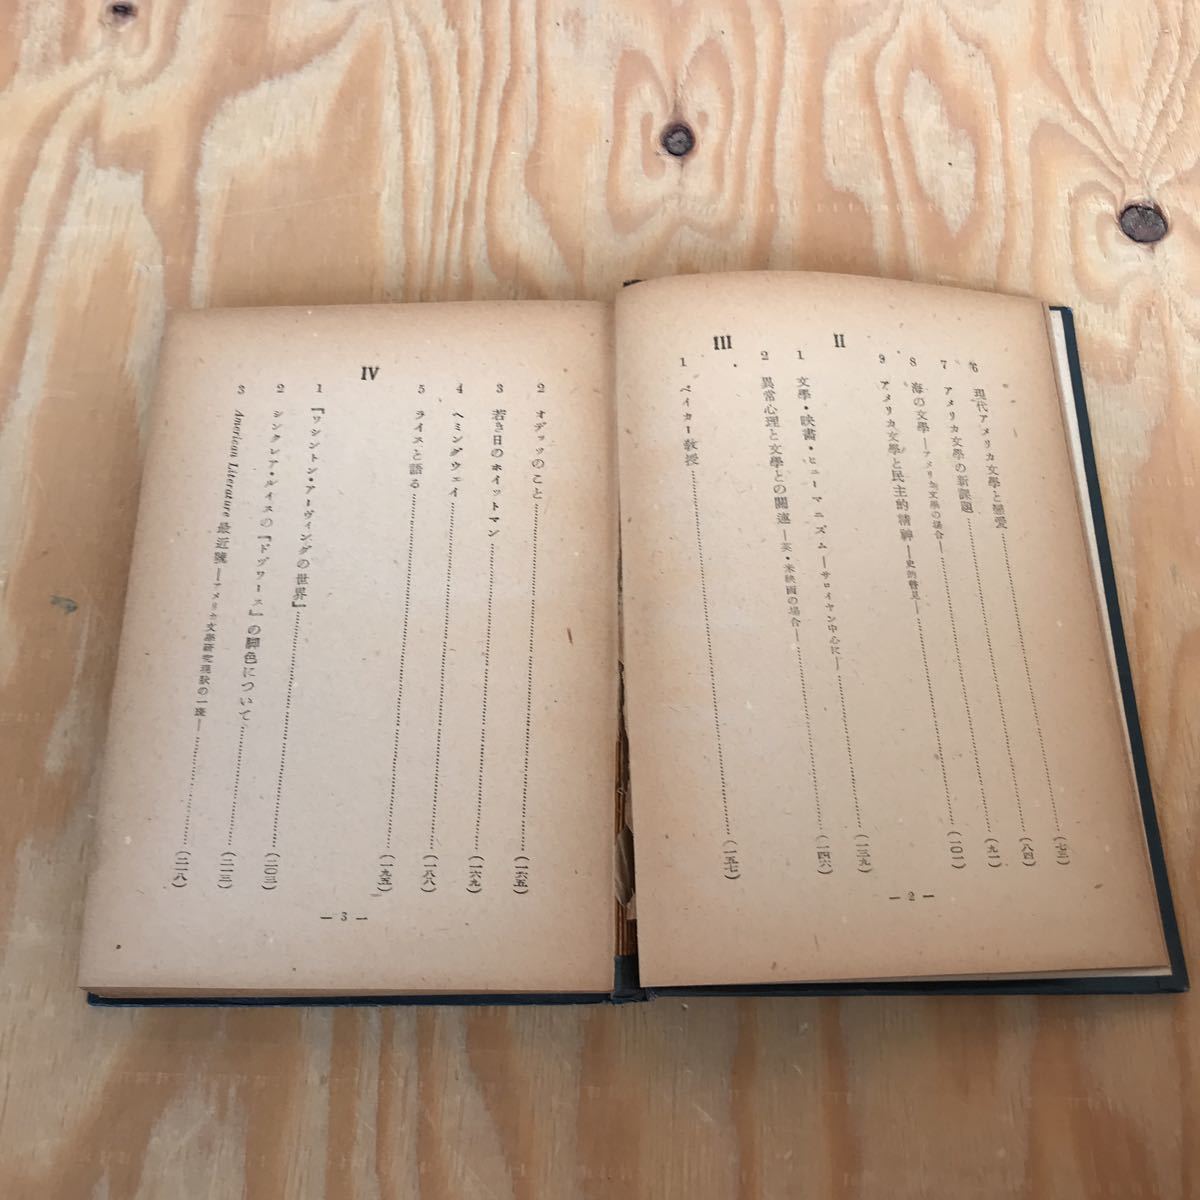 6 現代アメリカ文學と戀愛……(七三)
7 アメリカ文學の新課題……(八四)
8 海の文學―アメリカ文學の場合―……(九一)
9 アメリカ文學と民主的精神―史的瞥見―……(一〇一)
II
1 文學・映畫・ヒューマニズム―サロイヤン中心に―……(一三九)
2 異常心理と文學との關連―英・米映画の場合―……(一四六)
III
1 ベイカー教授……(一五七)
― 2 ―
2 オデッツのこと……(一六五)
3 若き日のホイットマン……(一六九)
4 ヘミングウェイ……(一八八)
5 ライスと語る……(一九五)
IV
1 『ワシントン・アーヴィングの世界』……(二〇三)
2 シンクレア・ルイスの『ドヅワース』の脚色について……(二一三)
3 American Literature 最近號―アメリカ文學研究現狀の一斑―……(二一八)
― 3 ―